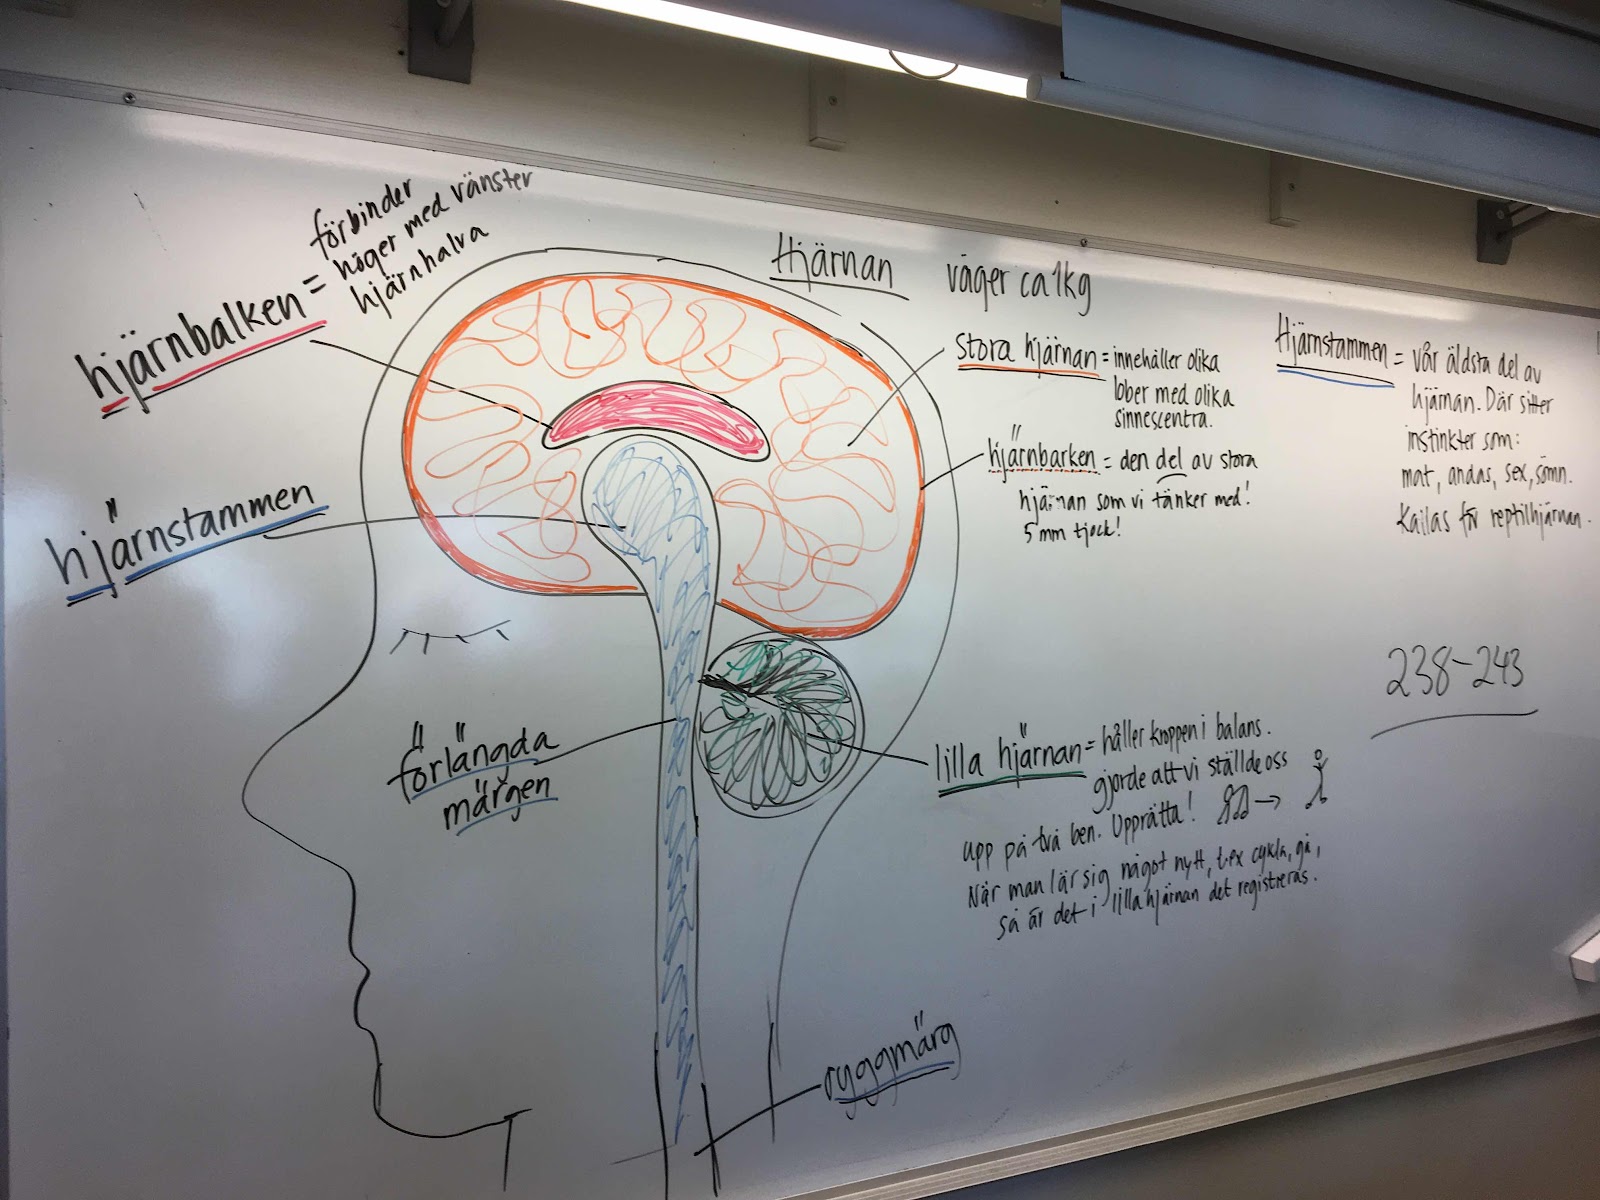 Hjärnan väger ca 1kg
hjärnbalken = förbinder
höger med vänster
hjärnhalva
hjärnstammen
förlängda
märgen
stora hjärnan = innehåller olika
lober med olika
sinnescentra.
hjärnbarken = den del av stora
hjärnan som vi tänker med!
5 mm tjock!
Hjärnstammen = vår äldsta del av
hjärnan. Där sitter
instinkter som:
mat, andas, sex, sömn.
Kallas för reptilhjärnan.
238-243
lilla hjärnan = håller kroppen i balans.
gjorde att vi ställde oss
upp på två ben. Upprätta! →
När man lär sig något nytt, t.ex cykla, gå,
så är det i lilla hjärnan det registreras.
ryggmärg